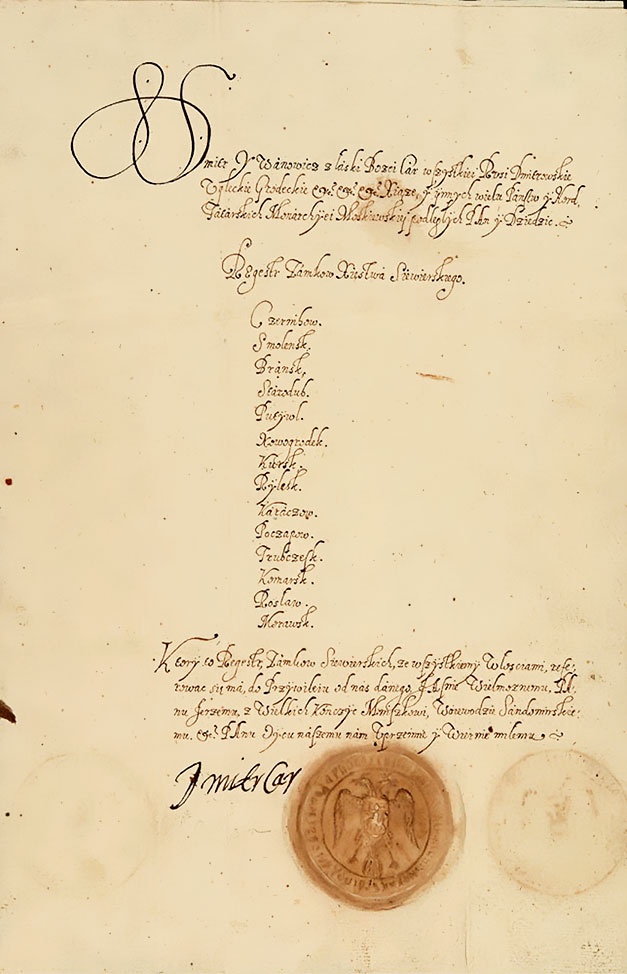 Dmitr Ywanowicz z łaski Bozei Car wszytkiei Rusi Dmitrowskie
Uglickie Grodeckie etc. etc. etc. Xiąze, y ynnych wielu Państw y Hord
Tatarskich Monarchyiei Moskiewskiy podległych Pan y Dziedzic.
Regestr Zamkow Xięstwa Siewierskiego.
Czernihow.
Smolensk.
Bransk.
Starodub.
Putywl.
Nowogrodek.
Kursk.
Rylesk.
Karaczow.
Poczapow.
Trubczesk.
Komarsk.
Roslaw.
Morawsk.
Ktory to Regestr, Zamkow Siewierskich, ze wszytkiemy Włosciami, refe-
rowac się ma, do Przywileiu od nas danego, JAsnie Wielmoznemu, PA-
nu Jerzemu, z Wielkich Konczyc Mniszkowi, Woiewodzie Sandomirskie-
mu. etc. PAnu Oycu naszemu nam Uprzeimie y Wiernie milemu
Dmitr Car